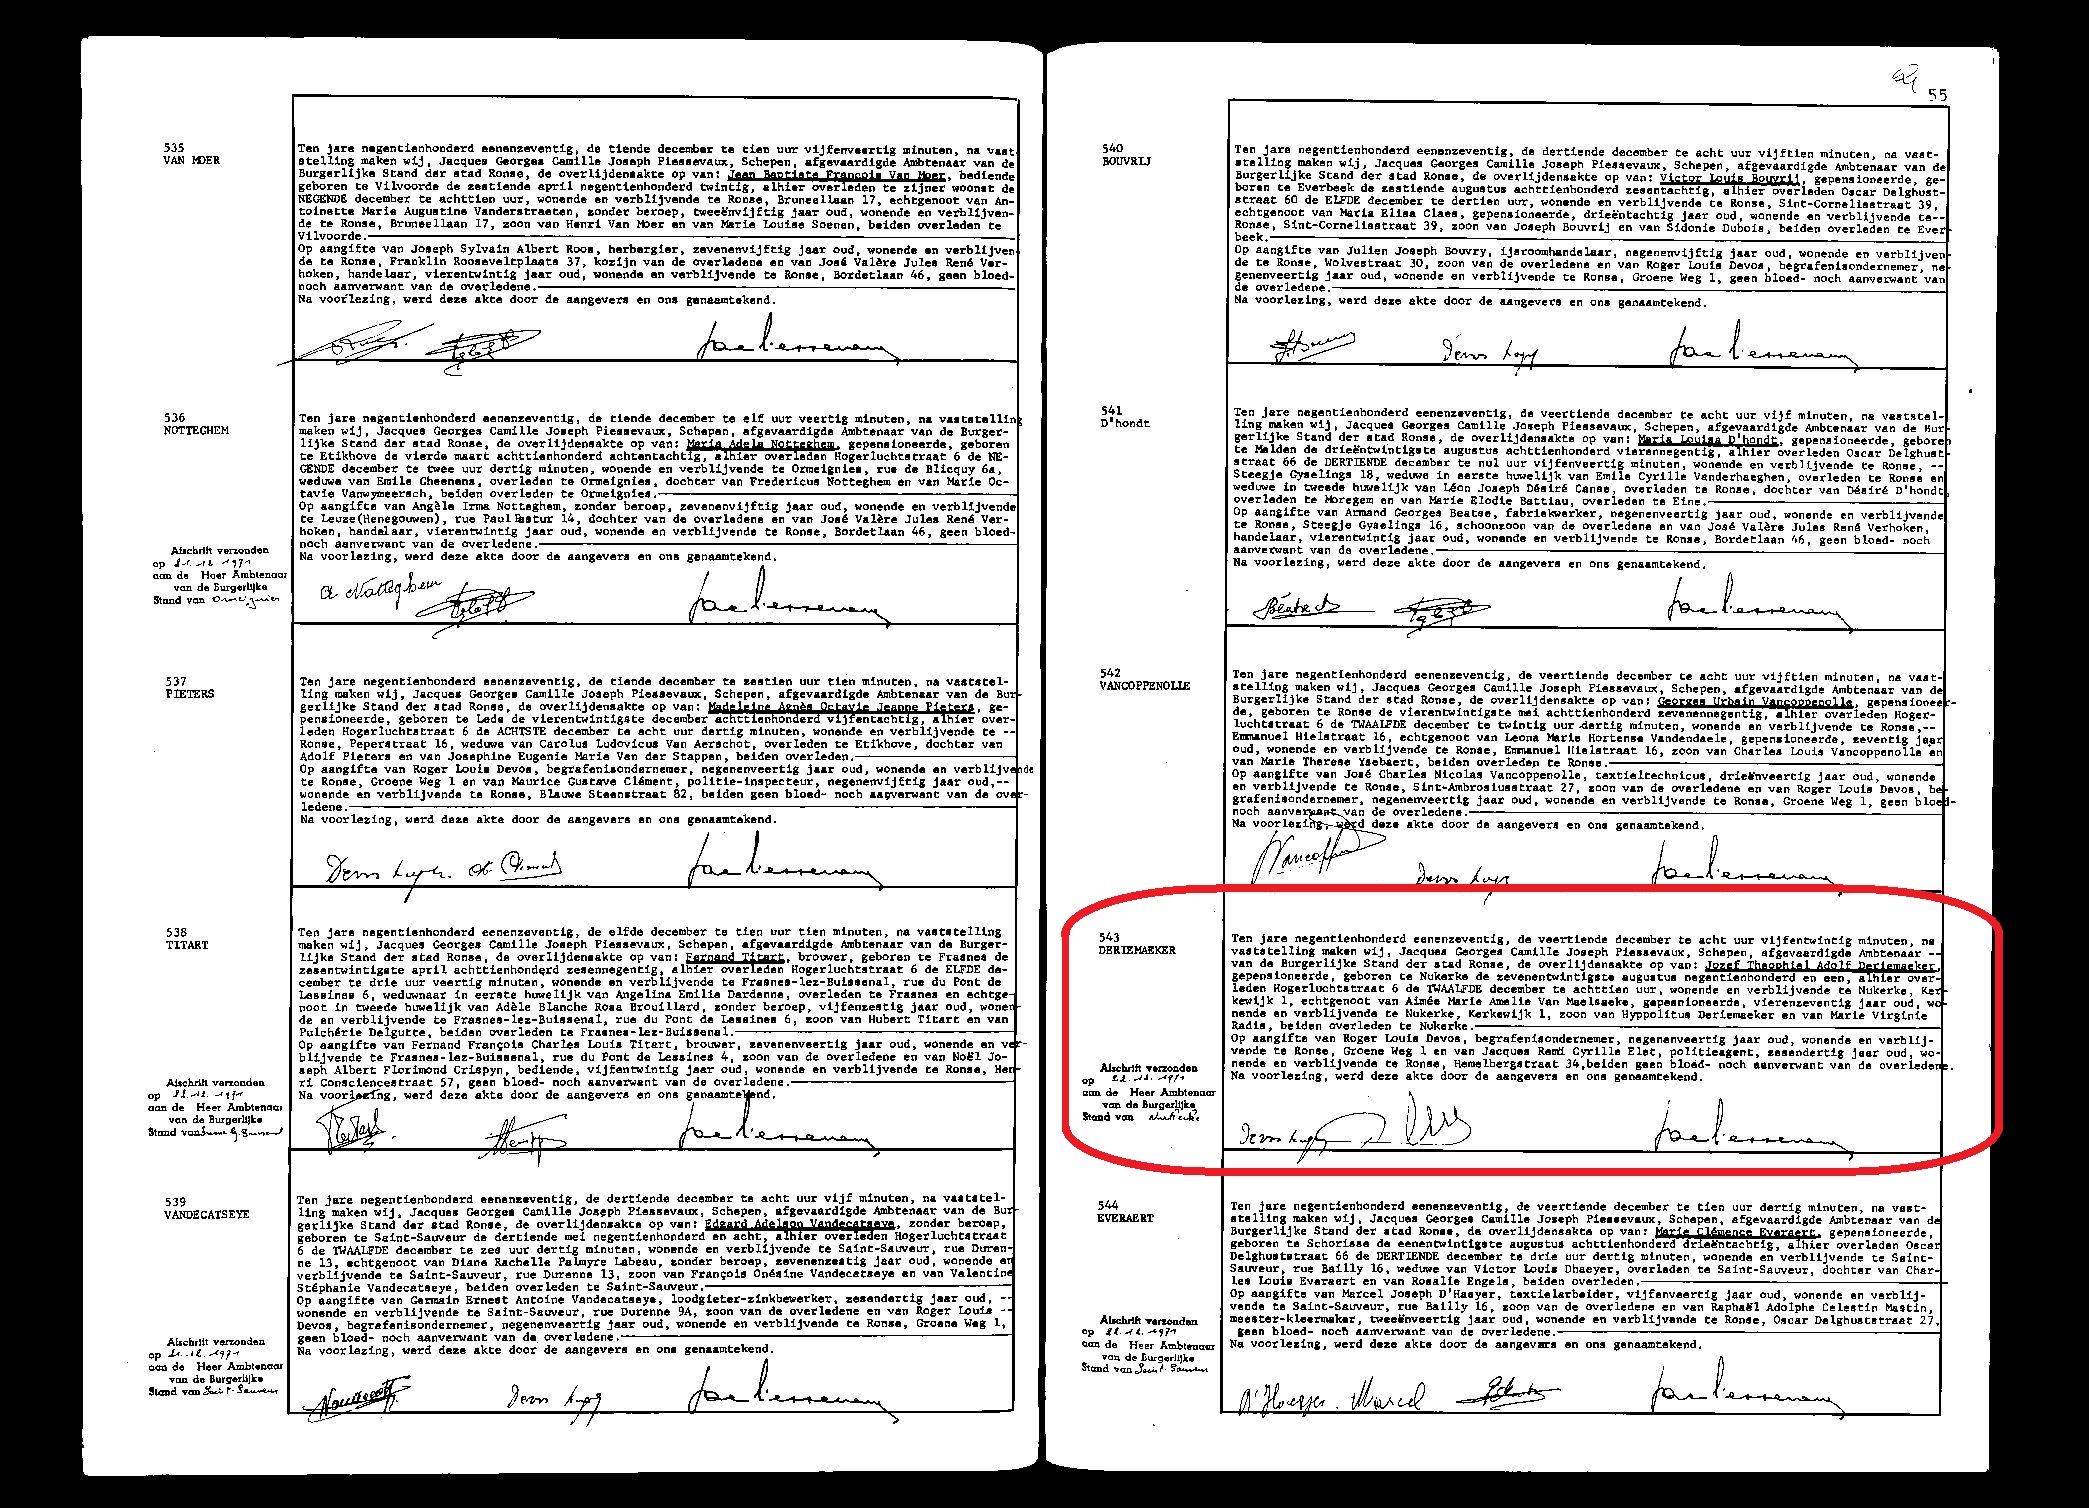 55
535
VAN MOER
Ten jare negentienhonderd eenenzeventig, de tiende december te tien uur vijfenveertig minuten, na vast-
stelling maken wij, Jacques Georges Camille Joseph Piessevaux, Schepen, afgevaardigde Ambtenaar van de
Burgerlijke Stand der stad Ronse, de overlijdensakte op van: Jean Baptiste François Van Moer, bediende
geboren te Vilvoorde de zestiende april negentienhonderd twintig, alhier overleden te zijner woonst de
NEGENDE december te achttien uur, wonende en verblijvende te Ronse, Bruneellaan 17, echtgenoot van An-
toinette Marie Augustine Vanderstraeten, zonder beroep, tweeënvijftig jaar oud, wonende en verblijven-
de te Ronse, Bruneellaan 17, zoon van Henri Van Moer en van Marie Louise Soenen, beiden overleden te
Vilvoorde.
Op aangifte van Joseph Sylvain Albert Roos, herbergier, zevenenvijftig jaar oud, wonende en verblijven
de te Ronse, Franklin Rooseveltplaats 37, kozijn van de overledene en van José Valère Jules René Ver-
hoken, handelaar, vierentwintig jaar oud, wonende en verblijvende te Ronse, Bordetlaan 46, geen bloed-
noch aanverwant van de overledene.
Na voorlezing, werd deze akte door de aangevers en ons genaamtekend.
536
NOTTEGHEM
Ten jare negentienhonderd eenenzeventig, de tiende december te elf uur veertig minuten, na vaststelling
maken wij, Jacques Georges Camille Joseph Piessevaux, Schepen, afgevaardigde Ambtenaar van de Burger-
lijke Stand der stad Ronse, de overlijdensakte op van: Maria Adela Notteghem, gepensioneerde, geboren
te Etikhove de vierde maart achttienhonderd achtentachtig, alhier overleden Hogerluchtstraat 6 de NE-
GENDE december te twee uur dertig minuten, wonende en verblijvende te Ormeignies, rue de Blicquy 6a,
weduwe van Emile Gheenens, overleden te Ormeignies, dochter van Fredericus Notteghem en van Marie Oc-
tavie Vanwymeersch, beiden overleden te Ormeignies.
Op aangifte van Angèle Irma Notteghem, zonder beroep, zevenenvijftig jaar oud, wonende en verblijvende
te Leuze(Henegouwen), rue Paul Pastur 14, dochter van de overledene en van José Valère Jules René Ver-
hoken, handelaar, vierentwintig jaar oud, wonende en verblijvende te Ronse, Bordetlaan 46, geen bloed-
noch aanverwant van de overledene.
Na voorlezing, werd deze akte door de aangevers en ons genaamtekend.
Afschrift verzonden
op 21.12.1971
aan de Heer Ambtenaar
van de Burgerlijke
Stand van Ormeignies
A Notteghem
537
PIETERS
Ten jare negentienhonderd eenenzeventig, de tiende december te zestien uur tien minuten, na vaststel-
ling maken wij, Jacques Georges Camille Joseph Piessevaux, Schepen, afgevaardigde Ambtenaar van de Bur-
gerlijke Stand der stad Ronse, de overlijdensakte op van: Madeleine Agnès Octavie Jeanne Pieters, ge-
pensioneerde, geboren te Lede de vierentwintigste december achttienhonderd vijfentachtig, alhier over-
leden Hogerluchtstraat 6 de ACHTSTE december te acht uur dertig minuten, wonende en verblijvende te --
Ronse, Peperstraat 16, weduwe van Carolus Ludovicus Van Aerschot, overleden te Etikhove, dochter van
Adolf Pieters en van Josephine Eugenie Marie Van der Stappen, beiden overleden.
Op aangifte van Roger Louis Devos, begrafenisondernemer, negenenveertig jaar oud, wonende en verblijvende
te Ronse, Groene Weg 1 en van Maurice Gustave Clément, politie-inspecteur, negenenvijftig jaar oud,--
wonende en verblijvende te Ronse, Blauwe Steenstraat 82, beiden geen bloed- noch aanverwant van de over-
ledene.
Na voorlezing, werd deze akte door de aangevers en ons genaamtekend.
538
TITART
Ten jare negentienhonderd eenenzeventig, de elfde december te tien uur tien minuten, na vaststelling
maken wij, Jacques Georges Camille Joseph Piessevaux, Schepen, afgevaardigde Ambtenaar van de Burger-
lijke Stand der stad Ronse, de overlijdensakte op van: Fernand Titart, brouwer, geboren te Frasnes de
zesentwintigste april achttienhonderd zesennegentig, alhier overleden Hogerluchtstraat 6 de ELFDE de-
cember te drie uur veertig minuten, wonende en verblijvende te Frasnes-lez-Buissenal, rue du Pont de
Lessines 6, weduwnaar in eerste huwelijk van Angelina Emilia Dardenne, overleden te Frasnes en echtge-
noot in tweede huwelijk van Adèle Blanche Rosa Brouillard, zonder beroep, vijfenzestig jaar oud, wonen-
de en verblijvende te Frasnes-lez-Buissenal, rue du Pont de Lessines 6, zoon van Hubert Titart en van
Pulchérie Delgutte, beiden overleden te Frasnes-lez-Buissenal.
Op aangifte van Fernand François Charles Louis Titart, brouwer, zevenenveertig jaar oud, wonende en ver-
blijvende te Frasnes-lez-Buissenal, rue du Pont de Lessines 4, zoon van de overledene en van Noël Jo-
seph Albert Florimond Crispyn, bediende, vijfentwintig jaar oud, wonende en verblijvende te Ronse, Hen
ri Consciencestraat 57, geen bloed- noch aanverwant van de overledene.
Na voorlezing, werd deze akte door de aangevers en ons genaamtekend.
Afschrift verzonden
op 22.12.1971
aan de Heer Ambtenaar
van de Burgerlijke
Stand van
539
VANDECATSEYE
Ten jare negentienhonderd eenenzeventig, de dertiende december te acht uur vijf minuten, na vaststel-
ling maken wij, Jacques Georges Camille Joseph Piessevaux, Schepen, afgevaardigde Ambtenaar van de Bur
gerlijke Stand der stad Ronse, de overlijdensakte op van: Edgard Adelson Vandecatseye, zonder beroep,
geboren te Saint-Sauveur de dertiende mei negentienhonderd en acht, alhier overleden Hogerluchtstraat
6 de TWAALFDE december te zes uur dertig minuten, wonende en verblijvende te Saint-Sauveur, rue Duren-
ne 13, echtgenoot van Diane Rachelle Palmyre Labeau, zonder beroep, zevenenzestig jaar oud, wonende en
verblijvende te Saint-Sauveur, rue Durenne 13, zoon van François Onésine Vandecatseye en van Valentine
Stéphanie Vandecatseye, beiden overleden te Saint-Sauveur.
Op aangifte van Germain Ernest Antoine Vandecatseye, loodgieter-zinkbewerker, zesendertig jaar oud, --
wonende en verblijvende te Saint-Sauveur, rue Durenne 9A, zoon van de overledene en van Roger Louis --
Devos, begrafenisondernemer, negenenveertig jaar oud, wonende en verblijvende te Ronse, Groene Weg 1,
geen bloed- noch aanverwant van de overledene.
Na voorlezing, werd deze akte door de aangevers en ons genaamtekend.
Afschrift verzonden
op 21.12.1971
aan de Heer Ambtenaar
van de Burgerlijke
Stand van Saint-Sauveur
540
BOUVRIJ
Ten jare negentienhonderd eenenzeventig, de dertiende december te acht uur vijftien minuten, na vast-
stelling maken wij, Jacques Georges Camille Joseph Piessevaux, Schepen, afgevaardigde Ambtenaar van de
Burgerlijke Stand der stad Ronse, de overlijdensakte op van: Victor Louis Bouvrij, gepensioneerde, ge-
boren te Everbeek de zestiende augustus achttienhonderd zesentachtig, alhier overleden Oscar Delghust-
straat 60 de ELFDE december te dertien uur, wonende en verblijvende te Ronse, Sint-Cornelisstraat 39,
echtgenoot van Maria Elisa Claes, gepensioneerde, drieëntachtig jaar oud, wonende en verblijvende te--
Ronse, Sint-Cornelisstraat 39, zoon van Joseph Bouvrij en van Sidonie Dubois, beiden overleden te Ever
beek.
Op aangifte van Julien Joseph Bouvry, ijsroomhandelaar, negenenvijftig jaar oud, wonende en verblijven
de te Ronse, Wolvestraat 30, zoon van de overledene en van Roger Louis Devos, begrafenisondernemer, ne
genenveertig jaar oud, wonende en verblijvende te Ronse, Groene Weg 1, geen bloed- noch aanverwant van
de overledene.
Na voorlezing, werd deze akte door de aangevers en ons genaamtekend.
541
D'hondt
Ten jare negentienhonderd eenenzeventig, de veertiende december te acht uur vijf minuten, na vaststel-
ling maken wij, Jacques Georges Camille Joseph Piessevaux, Schepen, afgevaardigde Ambtenaar van de Bur
gerlijke Stand der stad Ronse, de overlijdensakte op van: Maria Louisa D'hondt, gepensioneerde, geboren
te Melden de drieëntwintigste augustus achttienhonderd vierennegentig, alhier overleden Oscar Delghust-
straat 66 de DERTIENDE december te nul uur vijfenveertig minuten, wonende en verblijvende te Ronse, --
Steegje Gyselings 18, weduwe in eerste huwelijk van Emile Cyrille Vanderhaeghen, overleden te Ronse en
weduwe in tweede huwelijk van Léon Joseph Désiré Canse, overleden te Ronse, dochter van Désiré D'hondt
overleden te Moregem en van Marie Elodie Battiau, overleden te Eine.
Op aangifte van Armand Georges Beatse, fabriekwerker, negenenveertig jaar oud, wonende en verblijvende
te Ronse, Steegje Gyselings 16, schoonzoon van de overledene en van José Valère Jules René Verhoken,
handelaar, vierentwintig jaar oud, wonende en verblijvende te Ronse, Bordetlaan 46, geen bloed- noch
aanverwant van de overledene.
Na voorlezing, werd deze akte door de aangevers en ons genaamtekend.
542
VANCOPPENOLLE
Ten jare negentienhonderd eenenzeventig, de veertiende december te acht uur vijftien minuten, na vast-
stelling maken wij, Jacques Georges Camille Joseph Piessevaux, Schepen, afgevaardigde Ambtenaar van de
Burgerlijke Stand der stad Ronse, de overlijdensakte op van: Georges Urbain Vancoppenolle, gepensioneer-
de, geboren te Ronse de vierentwintigste mei achttienhonderd zevenennegentig, alhier overleden Hoger-
luchtstraat 6 de TWAALFDE december te twintig uur dertig minuten, wonende en verblijvende te Ronse,--
Emmanuel Hielstraat 16, echtgenoot van Leona Marie Hortense Vandendaele, gepensioneerde, zeventig jaar
oud, wonende en verblijvende te Ronse, Emmanuel Hielstraat 16, zoon van Charles Louis Vancoppenolle en
van Marie Therese Ysebaert, beiden overleden te Ronse.
Op aangifte van José Charles Nicolas Vancoppenolle, textieltechnicus, drieënveertig jaar oud, wonende
en verblijvende te Ronse, Sint-Ambrosiusstraat 27, zoon van de overledene en van Roger Louis Devos, be-
grafenisondernemer, negenenveertig jaar oud, wonende en verblijvende te Ronse, Groene Weg 1, geen bloed-
noch aanverwant van de overledene.
Na voorlezing, werd deze akte door de aangevers en ons genaamtekend.
543
DERIEMAEKER
Ten jare negentienhonderd eenenzeventig, de veertiende december te acht uur vijfentwintig minuten, na
vaststelling maken wij, Jacques Georges Camille Joseph Piessevaux, Schepen, afgevaardigde Ambtenaar --
van de Burgerlijke Stand der stad Ronse, de overlijdensakte op van: Jozef Theophiel Adolf Deriemaeker,
gepensioneerde, geboren te Nukerke de zevenentwintigste augustus negentienhonderd en een, alhier over-
leden Hogerluchtstraat 6 de TWAALFDE december te achttien uur, wonende en verblijvende te Nukerke, Ker-
kewijk 1, echtgenoot van Aimée Marie Amelie Van Maelsaeke, gepensioneerde, vierenzeventig jaar oud, wo-
nende en verblijvende te Nukerke, Kerkewijk 1, zoon van Hyppolitus Deriemaeker en van Marie Virginie
Radis, beiden overleden te Nukerke.
Op aangifte van Roger Louis Devos, begrafenisondernemer, negenenveertig jaar oud, wonende en verblij-
vende te Ronse, Groene Weg 1 en van Jacques Remi Cyrille Elet, politieagent, zesendertig jaar oud, wo-
nende en verblijvende te Ronse, Hemelbergstraat 34,beiden geen bloed- noch aanverwant van de overledene.
Na voorlezing, werd deze akte door de aangevers en ons genaamtekend.
Afschrift verzonden
op 22.12.1971
aan de Heer Ambtenaar
van de Burgerlijke
Stand van Nukerke
544
EVERAERT
Ten jare negentienhonderd eenenzeventig, de veertiende december te tien uur dertig minuten, na vast-
stelling maken wij, Jacques Georges Camille Joseph Piessevaux, Schepen, afgevaardigde Ambtenaar van de
Burgerlijke Stand der stad Ronse, de overlijdensakte op van: Marie Clémence Everaert, gepensioneerde,
geboren te Schorisse de eenentwintigste augustus achttienhonderd drieëntachtig, alhier overleden Oscar
Delghuststraat 66 de DERTIENDE december te drie uur dertig minuten, wonende en verblijvende te Saint-
Sauveur, rue Bailly 16, weduwe van Victor Louis Dhaeyer, overleden te Saint-Sauveur, dochter van Char-
les Louis Everaert en van Rosalie Engels, beiden overleden.
Op aangifte van Marcel Joseph D'Haeyer, textielarbeider, vijfenveertig jaar oud, wonende en verblij-
vende te Saint-Sauveur, rue Bailly 16, zoon van de overledene en van Raphaël Adolphe Celestin Mastin,
meester-kleermaker, tweeënveertig jaar oud, wonende en verblijvende te Ronse, Oscar Delghuststraat 27,
geen bloed- noch aanverwant van de overledene.
Na voorlezing, werd deze akte door de aangevers en ons genaamtekend.
Afschrift verzonden
op 22.12.1971
aan de Heer Ambtenaar
van de Burgerlijke
Stand van Saint-Sauveur
D'Haeyer Marcel